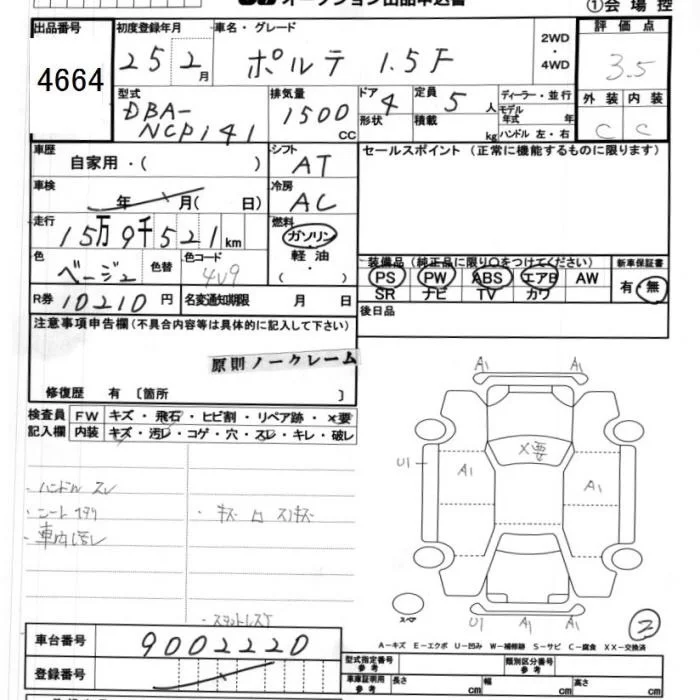 オークション出品申込書
①会場控
出品番号
4664
初度登録年月
25 2月
車名・グレード
ポルテ 1.5F
2WD
・
4WD
評価点
3.5
外装 内装
C C
型式
DBA-
NCP141
排気量
1500
CC
ドア 4
形状
定員 5人
積載 kg
ディーラー・並行
モデル
年式 年
ハンドル 左・右
車歴
自家用・( )
シフト
AT
セールスポイント (正常に機能するものに限ります)
車検
年 月( 日)
冷房
AC
走行
15万9千521km
燃料
ガソリン
軽油
・
( )
色
ベージュ
色替
色コード
4V9
装備品(純正品に限り○をつけてください)
PS PW ABS エアB AW
SR ナビ TV カワ
新車保証書
有・無
R券 10210円
名変通知期限 月 日
後日品
注意事項申告欄(不具合内容等は具体的に記入して下さい)
原則ノークレーム
修復歴 有 〔箇所 〕
検査員
記入欄
FW キズ・飛石・ヒビ割・リペア跡・×要
内装 キズ・汚レ・コゲ・穴・スレ・キレ・破レ
・ハンドル スレ
・シート
・車内汚レ
・キズ
A1 A1
X要
U1
A1 A1
スペア
U1 A1 A1
2
A-キズ E-エクボ U-凹み W-補修跡 S-サビ C-腐食 XX-交換済
車台番号
9002220
登録番号
型式指定番号
参考
類別区分番号
参考
車庫証明用
参考
長さ cm 幅 cm 高さ cm